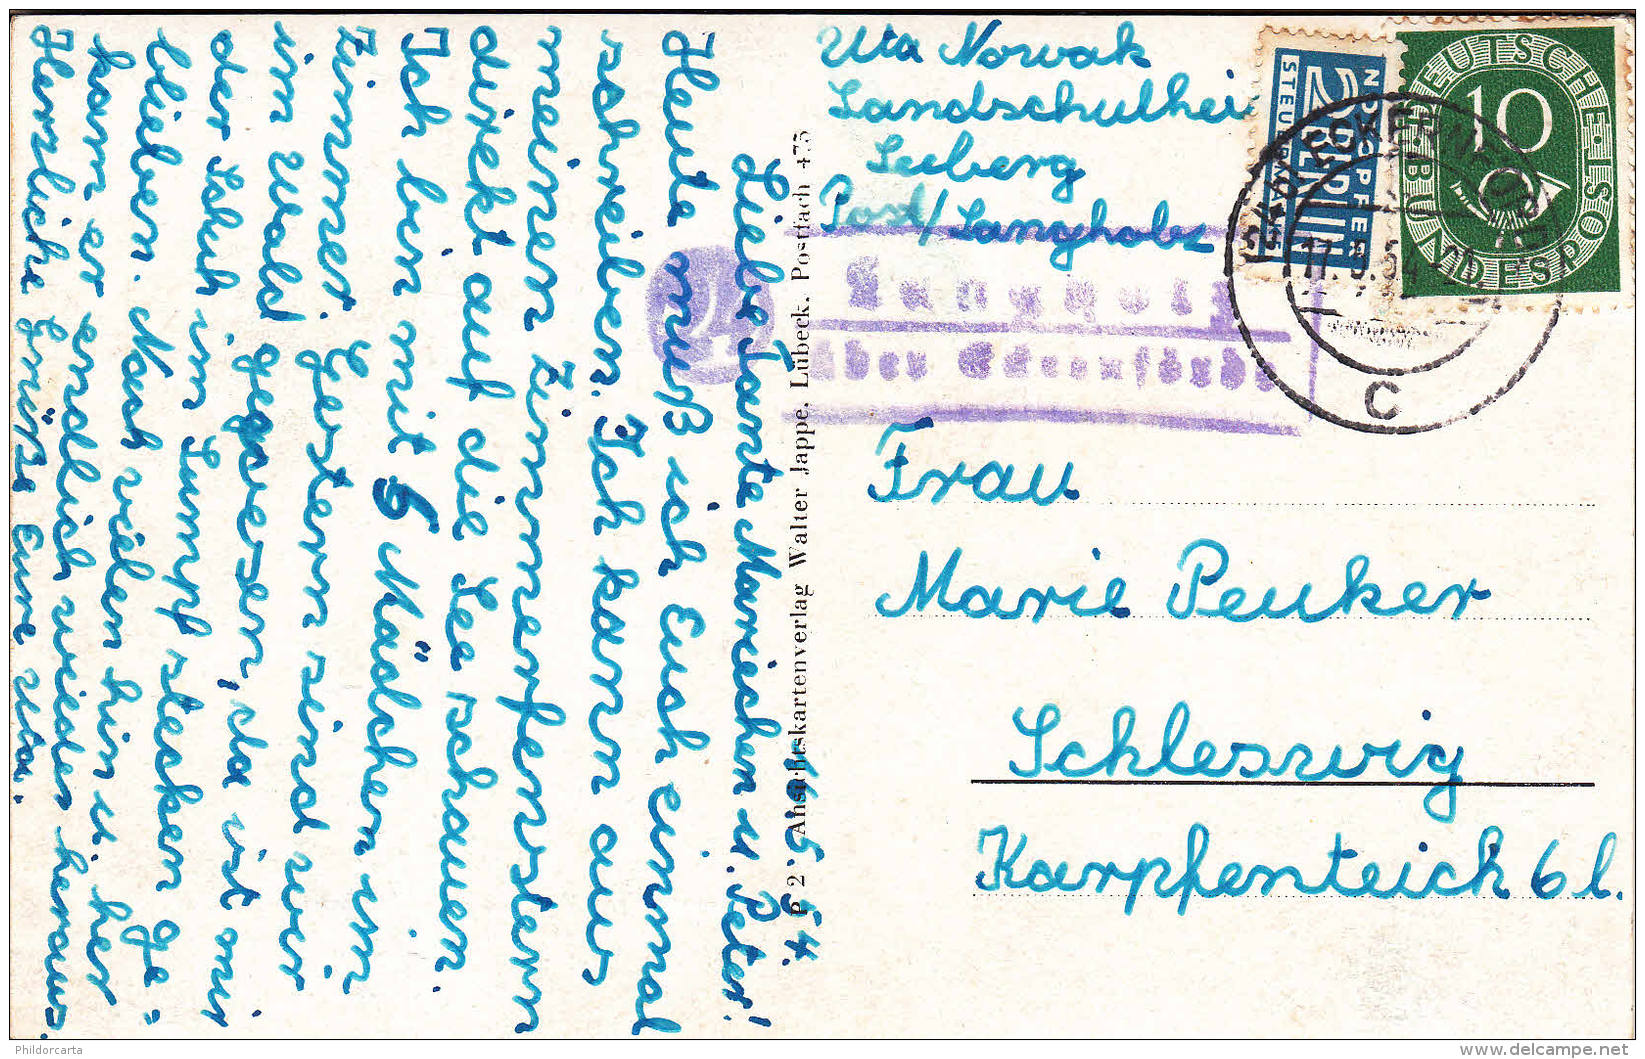 16.5.54.
Liebe Tante Mariechen u. Peter!
Heute muß ich Euch einmal
schreiben. Ich kann aus
meinen Zimmerfenstern
direkt auf die See schauen.
Ich bin mit 6 Mädchen im
Zimmer. Gestern sind wir
im Wald gewesen, da ist mir
der Schuh im Sumpf stecken ge-
blieben. Nach vielem hin u. her
kam er endlich wieder heraus.
Herzliche Grüße Eure Uta.
P 2 Ansichtskartenverlag Walter Jappe, Lübeck, Postfach 475
Uta Nowak
Landschulheim
Seeberg
Post/Langholz
24
Langholz
über Eckernförde
NOTOPFER
2 BERLIN
STEUERMARKE
DEUTSCHE BUNDESPOST
10
(24b) ECKERNFÖRDE
17.5.54
C
Frau
Marie Peuker
Schleswig
Karpfenteich 6 l.
Phildorcarta
delcampe.net